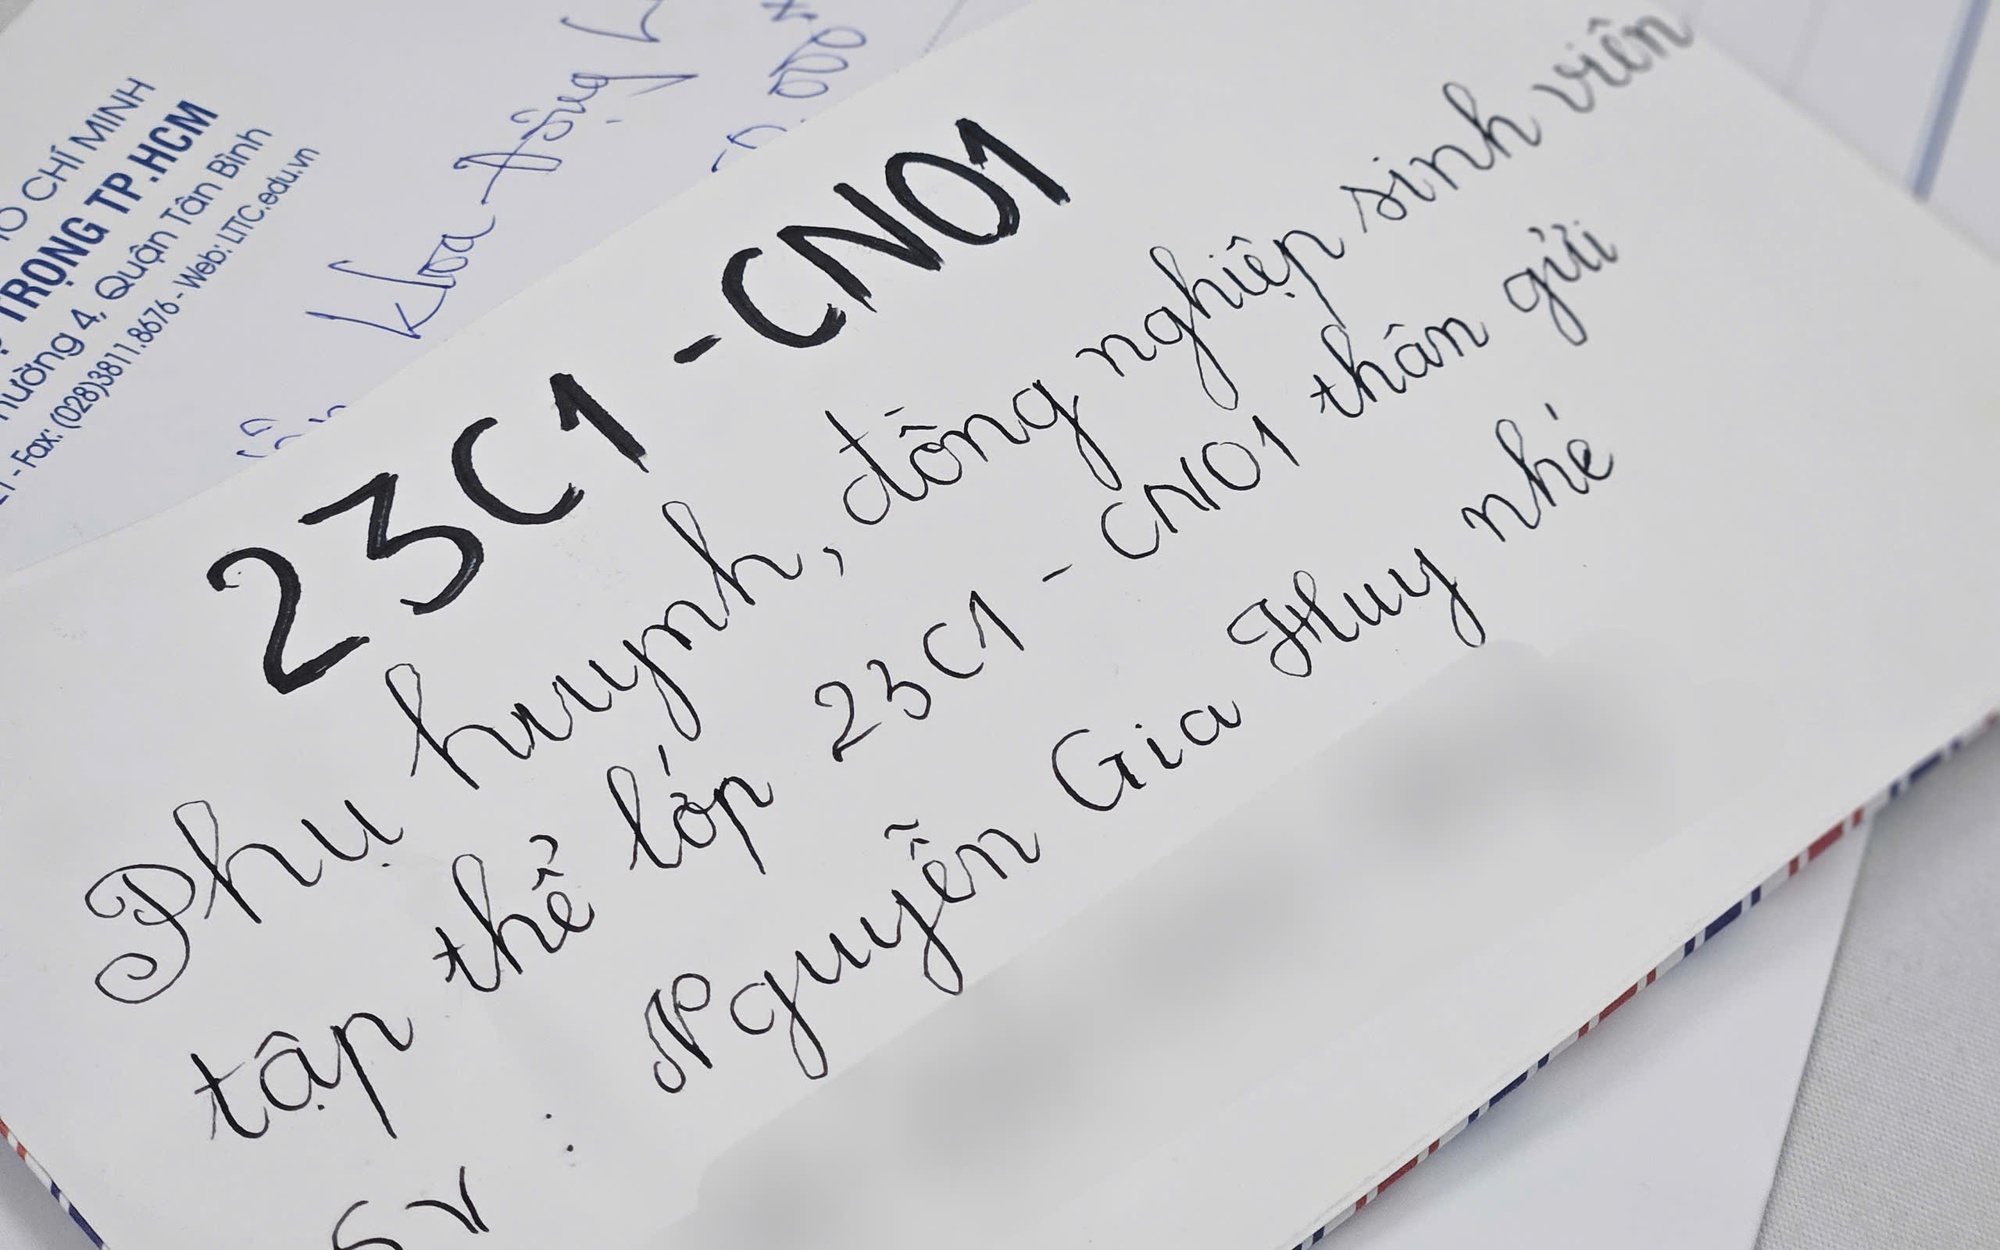 CHÍ MINH
TRỌNG TP.HCM
4, Quận Tân Bình
- Fax: (028)3811.8676 - Web: LTTC.edu.vn
khoa động
23C1 - CN01
Phụ huynh, đồng nghiệp sinh viên
tập thể lớp 23C1 - CN01 thân gửi
SV : Nguyễn Gia Huy nhé